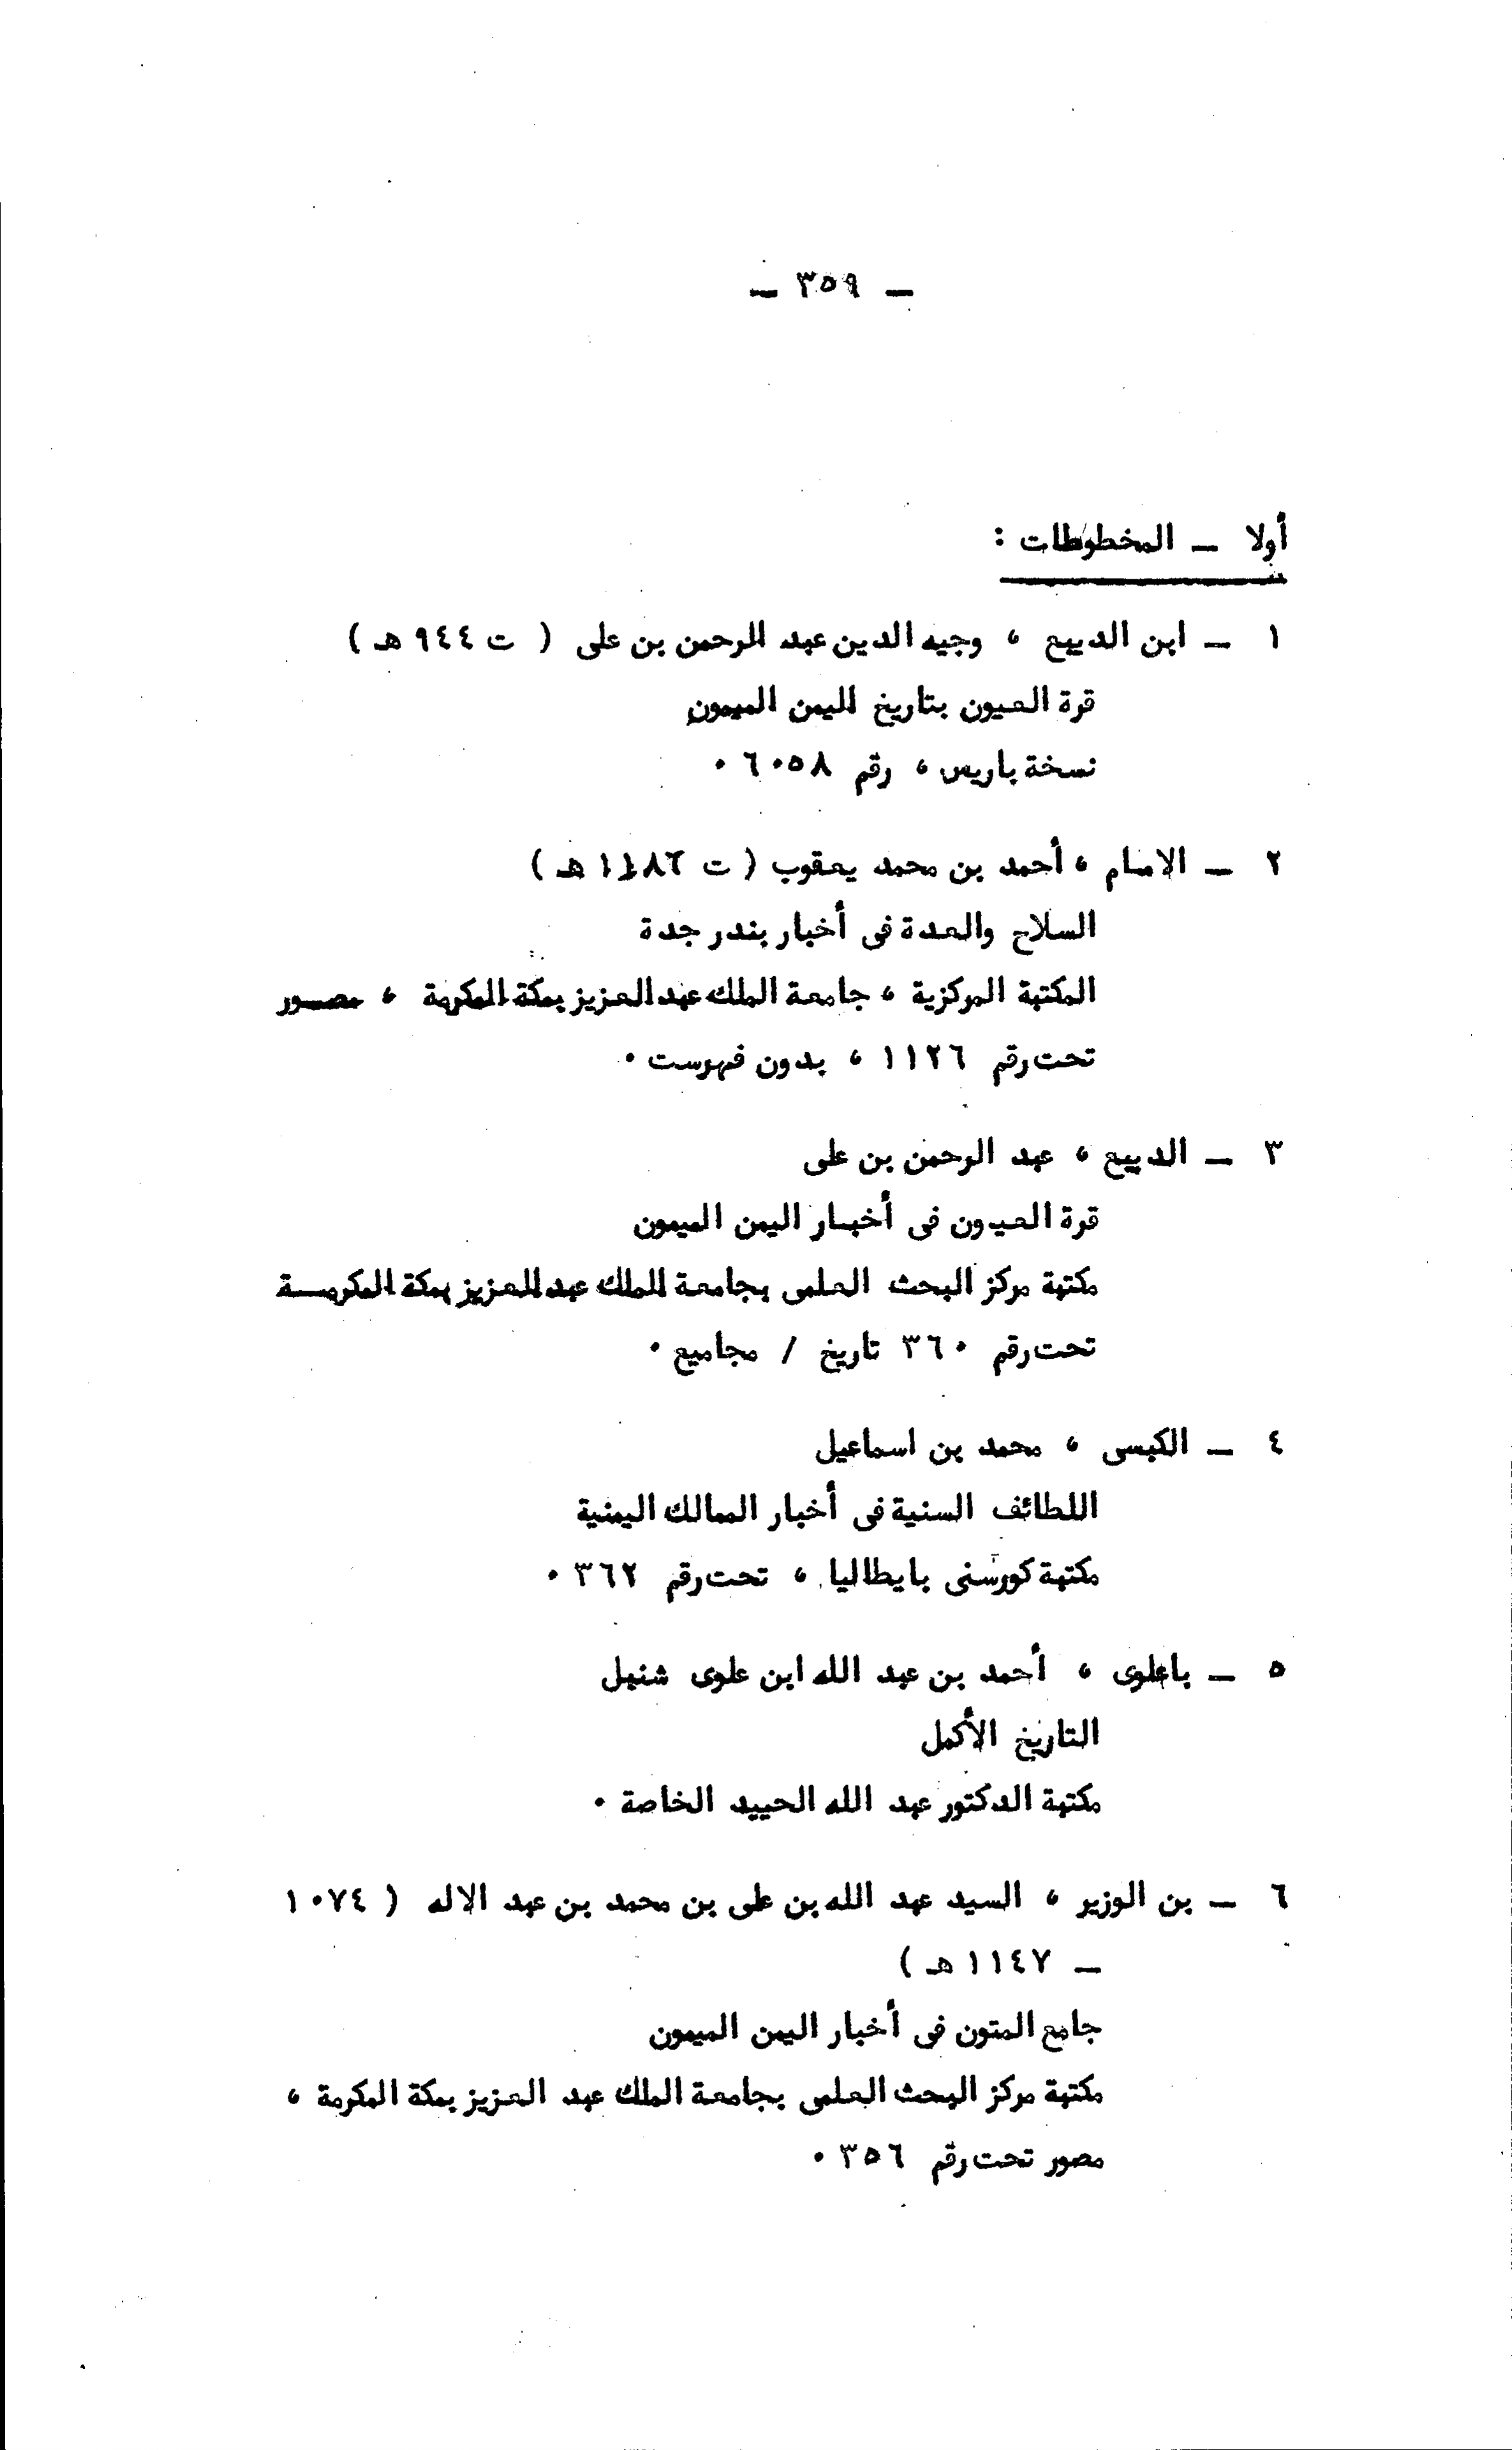 – ٣٥٩ –
أولا – المخطوطات :
١ – ابن الديبع ، وجيه الدين عبد الرحمن بن على ( ت ٩٤٤ هـ )
قرة العيون بتاريخ اليمن الميمون
نسخة باريس ، رقم ٦٠٥٨ ٠
٢ – الامام ، أحمد بن محمد يعقوب ( ت ١١٨٢ هـ )
السلاح والعدة فى أخبار بندر جدة
المكتبة المركزية ، جامعة الملك عبد العزيز بمكة المكرمة ، مصور
تحت رقم ١١٢٦ ، بدون فهرست ٠
٣ – الديبع ، عبد الرحمن بن على
قرة العيون فى أخبار اليمن الميمون
مكتبة مركز البحث العلمى بجامعة الملك عبد العزيز بمكة المكرمة
تحت رقم ٣٦٠ تاريخ / مجاميع ٠
٤ – الكبسى ، محمد بن اسماعيل
اللطائف السنية فى أخبار الممالك اليمنية
مكتبة كورسنى بايطاليا ، تحت رقم ٣٦٢ ٠
٥ – باعلوى ، أحمد بن عبد الله ابن علوى شنبل
التاريخ الأكمل
مكتبة الدكتور عبد الله الحييد الخاصة ٠
٦ – بن الوزير ، السيد عبد الله بن على بن محمد بن عبد الاله ( ١٠٧٤
– ١١٤٧ هـ )
جامع المتون فى أخبار اليمن الميمون
مكتبة مركز البحث العلمى بجامعة الملك عبد العزيز بمكة المكرمة ،
مصور تحت رقم ٣٥٦ ٠